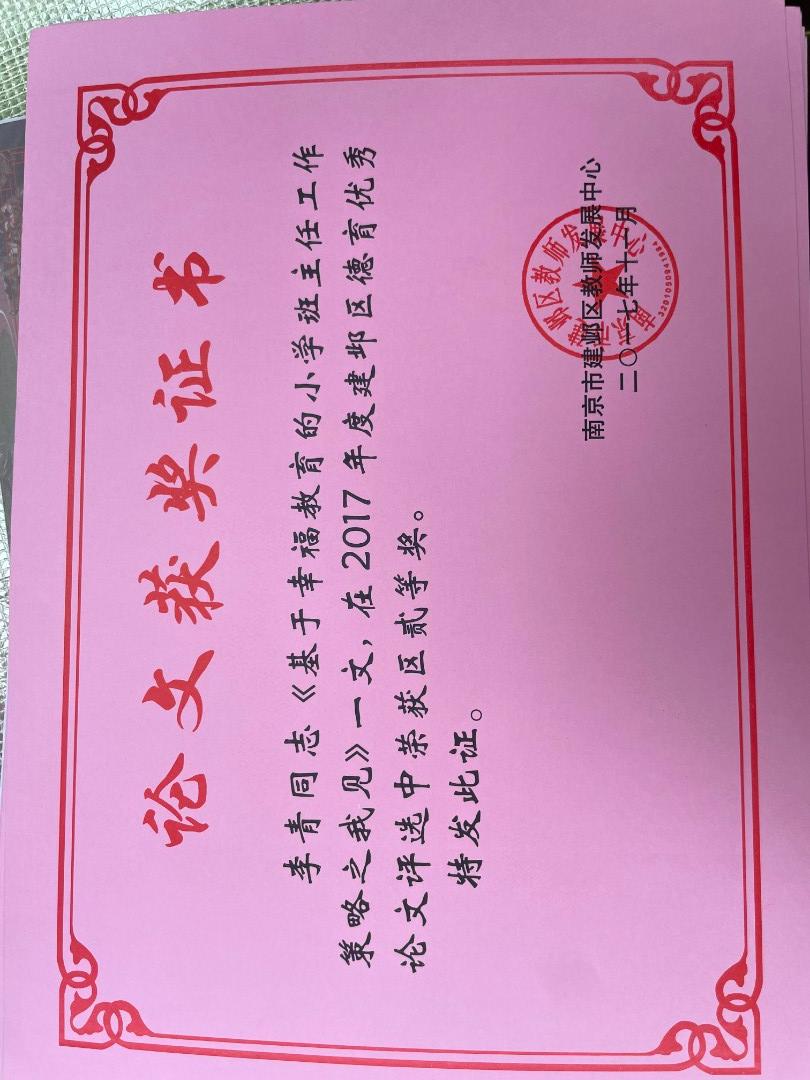 论文获奖证书
李青同志《基于幸福教育的小学班主任工作
策略之我见》一文，在2017年度建邺区德育优秀
论文评选中荣获区贰等奖。
特发此证。
南京市建邺区教师发展中心
二〇一七年十一月